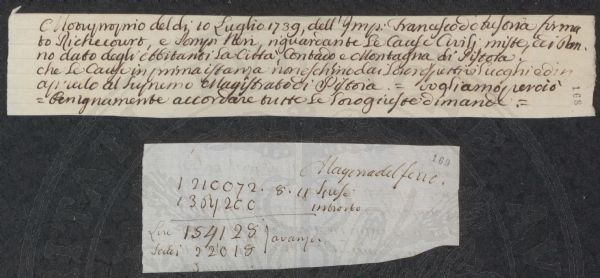 Motuproprio del di 10 Luglio 1739, dell' Imp: Francesco di Lorena firma
to Richecourt, e riguardante Le Cause Civili, miste, e di Dan
no dato degli Abbitanti La Città, Contado e Montagna di Pistoia
che Le Cause in prima istanza non eschino dai Loro rispettivi Luoghi ed in
appello al Supremo Magistrato di Pistoia. = Vogliamo perciò
= benignamente accordare tutte Le Loro giuste dimande =
168
169
Magona del ferro.
1210072. 8. 11 Spese
1364200 introito
Lire 154128 avanzi.
Scudi 22018